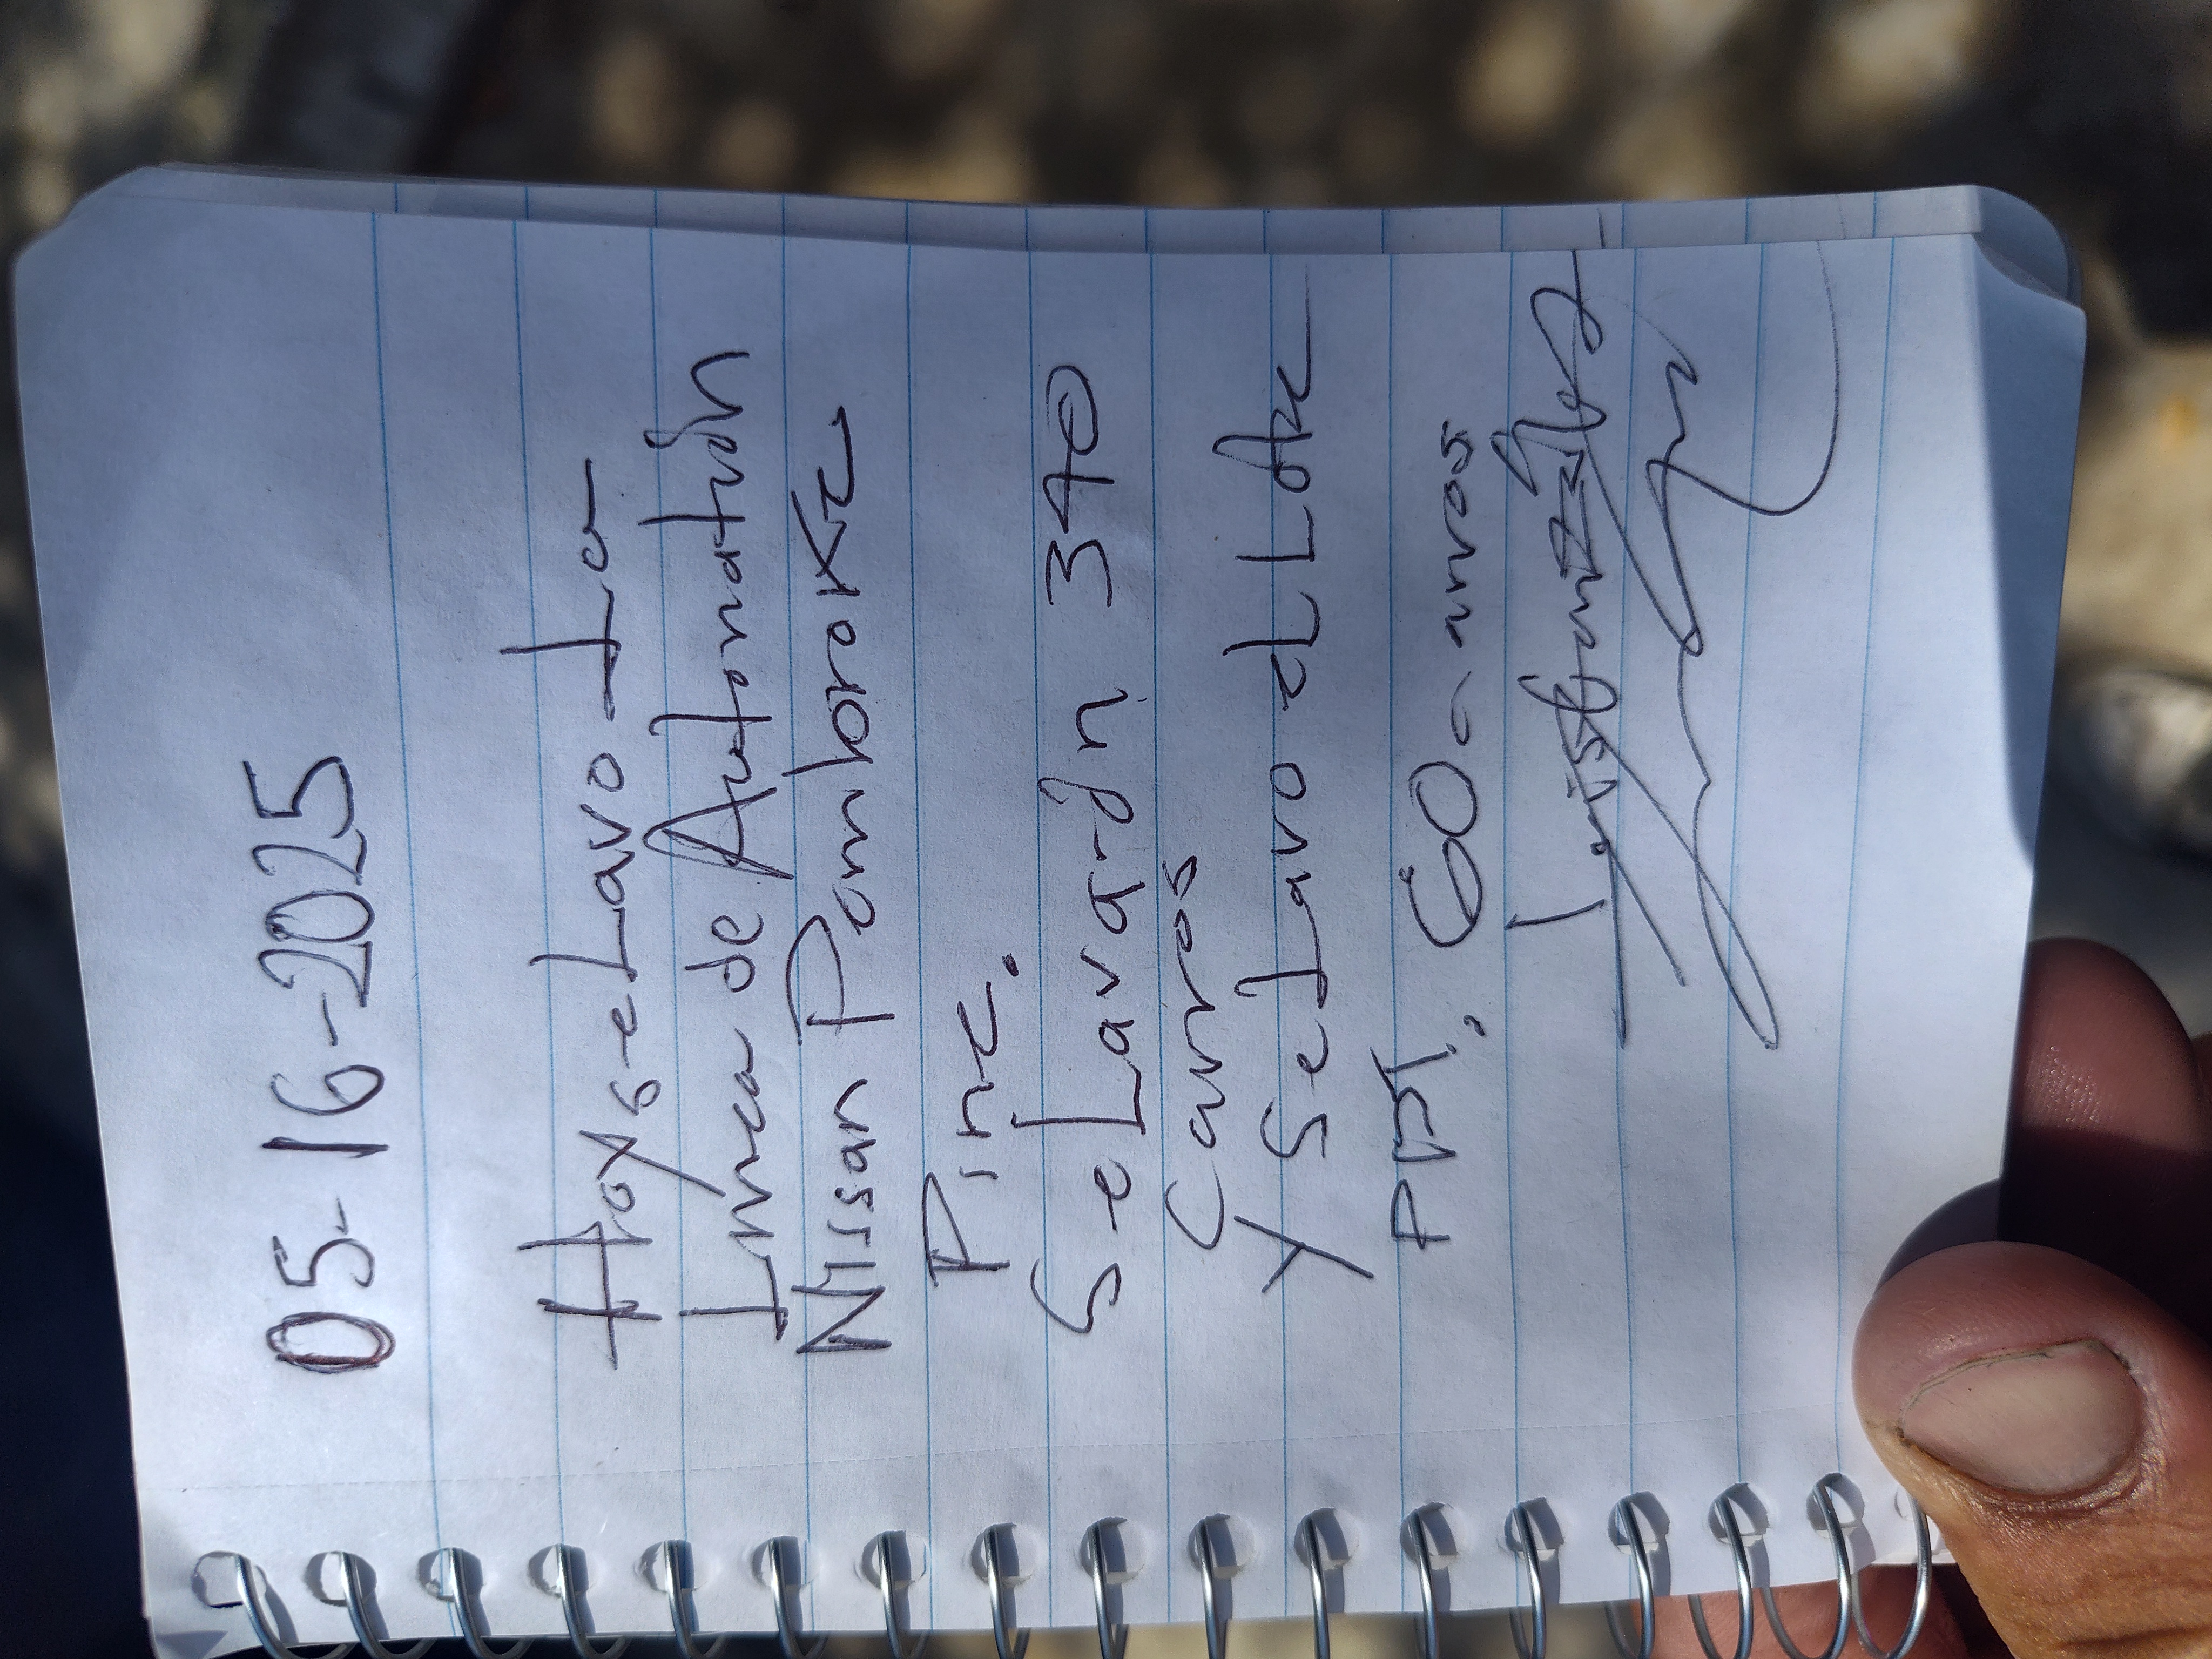 05-16-2025
Hoy se Lavo La
Linea de Automation
Nissan Pembroke
Pine.
Se Lavarón 370
Carros
y Se Lavo el Lote
PDI. 60 carros
Luis González